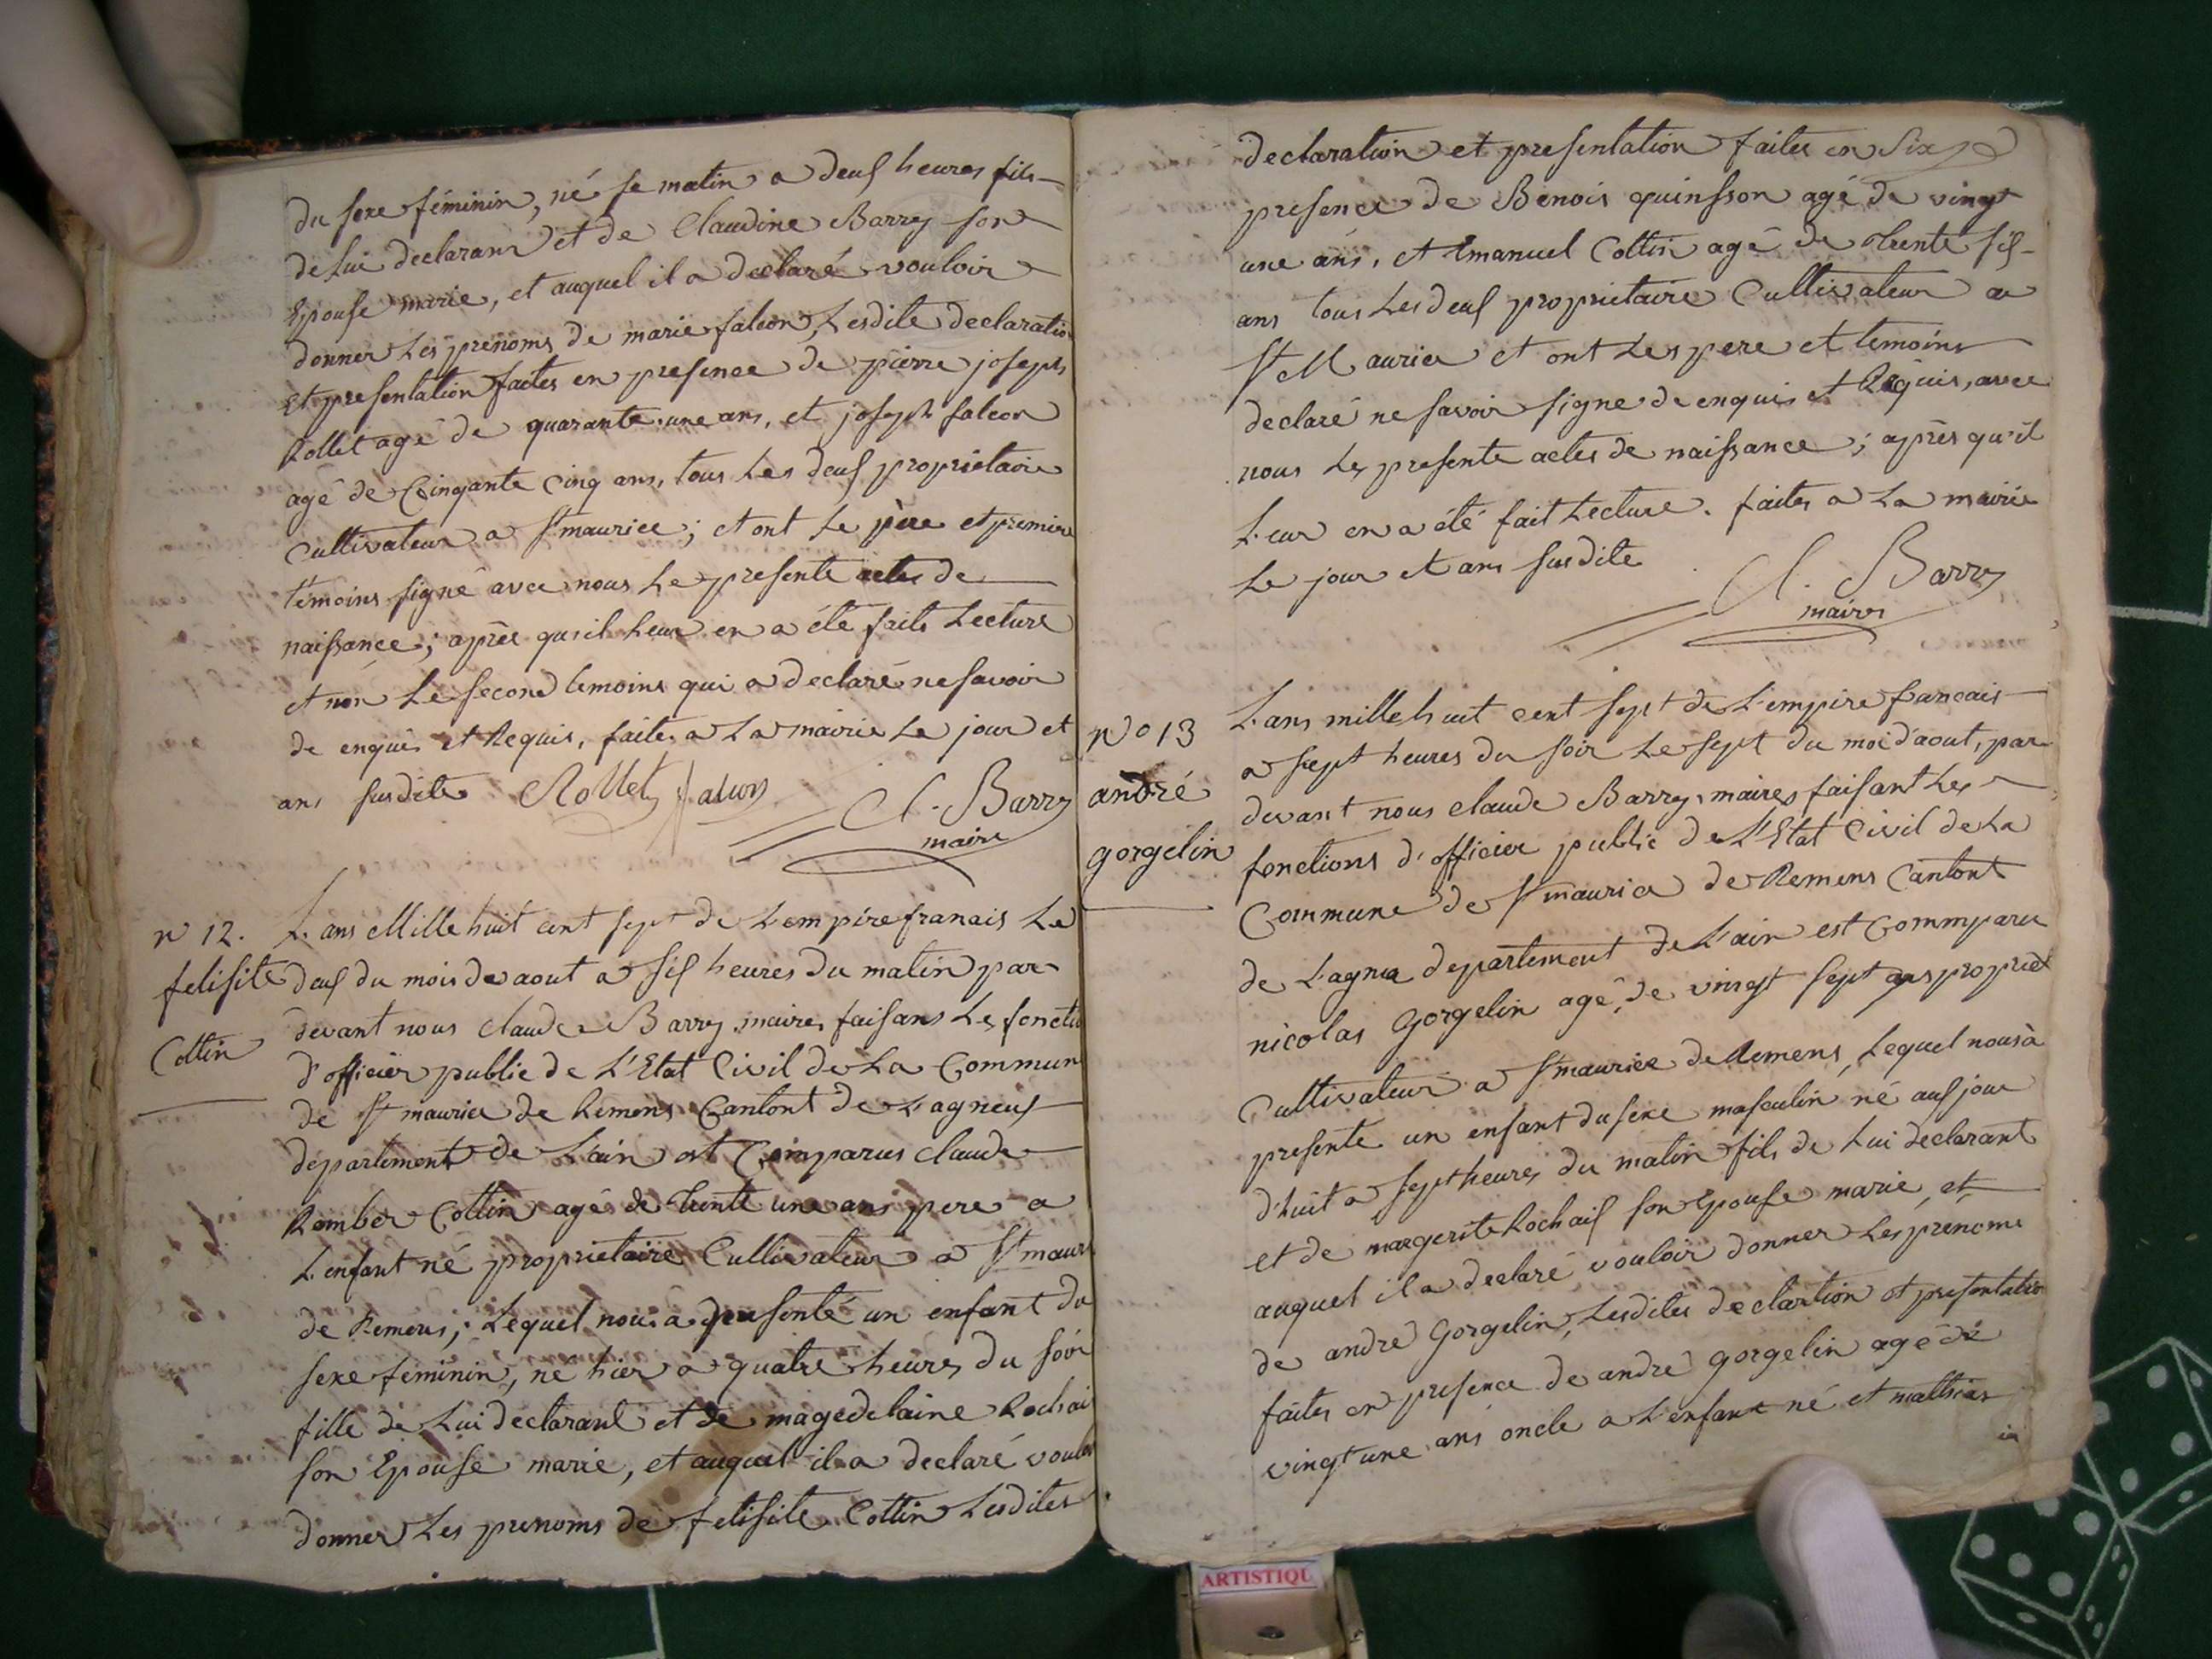 du sexe féminin, né se matin a deuf heures fils
de lui declarans et de Claudine Barry son
Epouse marie, et auquel il a declaré vouloir
donner les prenoms de marie falcon, Lesdite declaratio
Et presentation faites en presence de pierre joseph
Rollet agé de quarante une ans, et joseph falcon
agé de Cinqante cinq ans, tous les deuf proprietaire
Cultivateur a St maurice; et ont le père et premire
témoins signé avec nous le presente actes de
naissance; après qusil leur en a été faite Lecture
et non Le second temoins qui a declaré ne savoir
de enquis et Requis, faite a La mairie Le jour et
ans susdite Rollet falcon
Cl. Barry
maire
n° 12.
felisite
Cottin
L'ans Mille huit cent sept de L'empire franais Le
deuf du mois de aout a sif heures du matin par
devant nous claude Barry maires faisans les fonctio
d'officier public de L'Etat Civil de La Commun
de St maurice de Remens Cantont de Lagneuf
département de L'ain est Comparus claude
Rember Cottin agé de trente une ans pere a
L'enfant né proprietaire Cultivateur a St maur
de Remens; Lequel nous a presenté un enfant du
sexe feminin, né hier a quatre heures du soir
fille de Lui declarant et de magedelaine Rochai
son Epouse marie, et auquel il a declaré voulo
donner Les prenoms de felisite Cottin Lesdites
declaration et presentation faites en Six
presence de Benois quinsson agé de vingt
une ans, et Emanuel Cottin agé de trente sif
ans tous Les deuf proprietaire Cultivateur a
St Maurice et ont Les pere et temoins
declaré ne savoir signe de enquis et Requis, avec
nous Les presente actes de naissance; après qu'il
Leur en a été fait Lecture. faites a La mairie
Le jour et ans susdite
Cl. Barry
maires
N° 13
andré
gorgelin
L'ans mille huit cent sept de L'empire francais
a sept heures du soir Le sept du moi d'aout, par
devant nous claude Barry maires faisant Les
fonctions d'officier public de L'Etat Civil de La
Commune de St maurice de Remens Cantont
de Lagnia departement de L'ain est Commparu
nicolas Gorgelin agé de vingt sept ans propriet
Cultivateur a St maurice de Remens, Lequel nous à
presente un enfant du sexe masculin né auf jour
d'huit a sept heures du matin fils de Lui declarant
et de margerite Rochaif son Epouse marie, et
auquel il a declaré vouloir donner Les prénoms
de andre Gorgelin, Lesdites declartion et presentatio
faites en presence de andre gorgelin agé de
vingt une ans oncle a L'enfant né et mathias